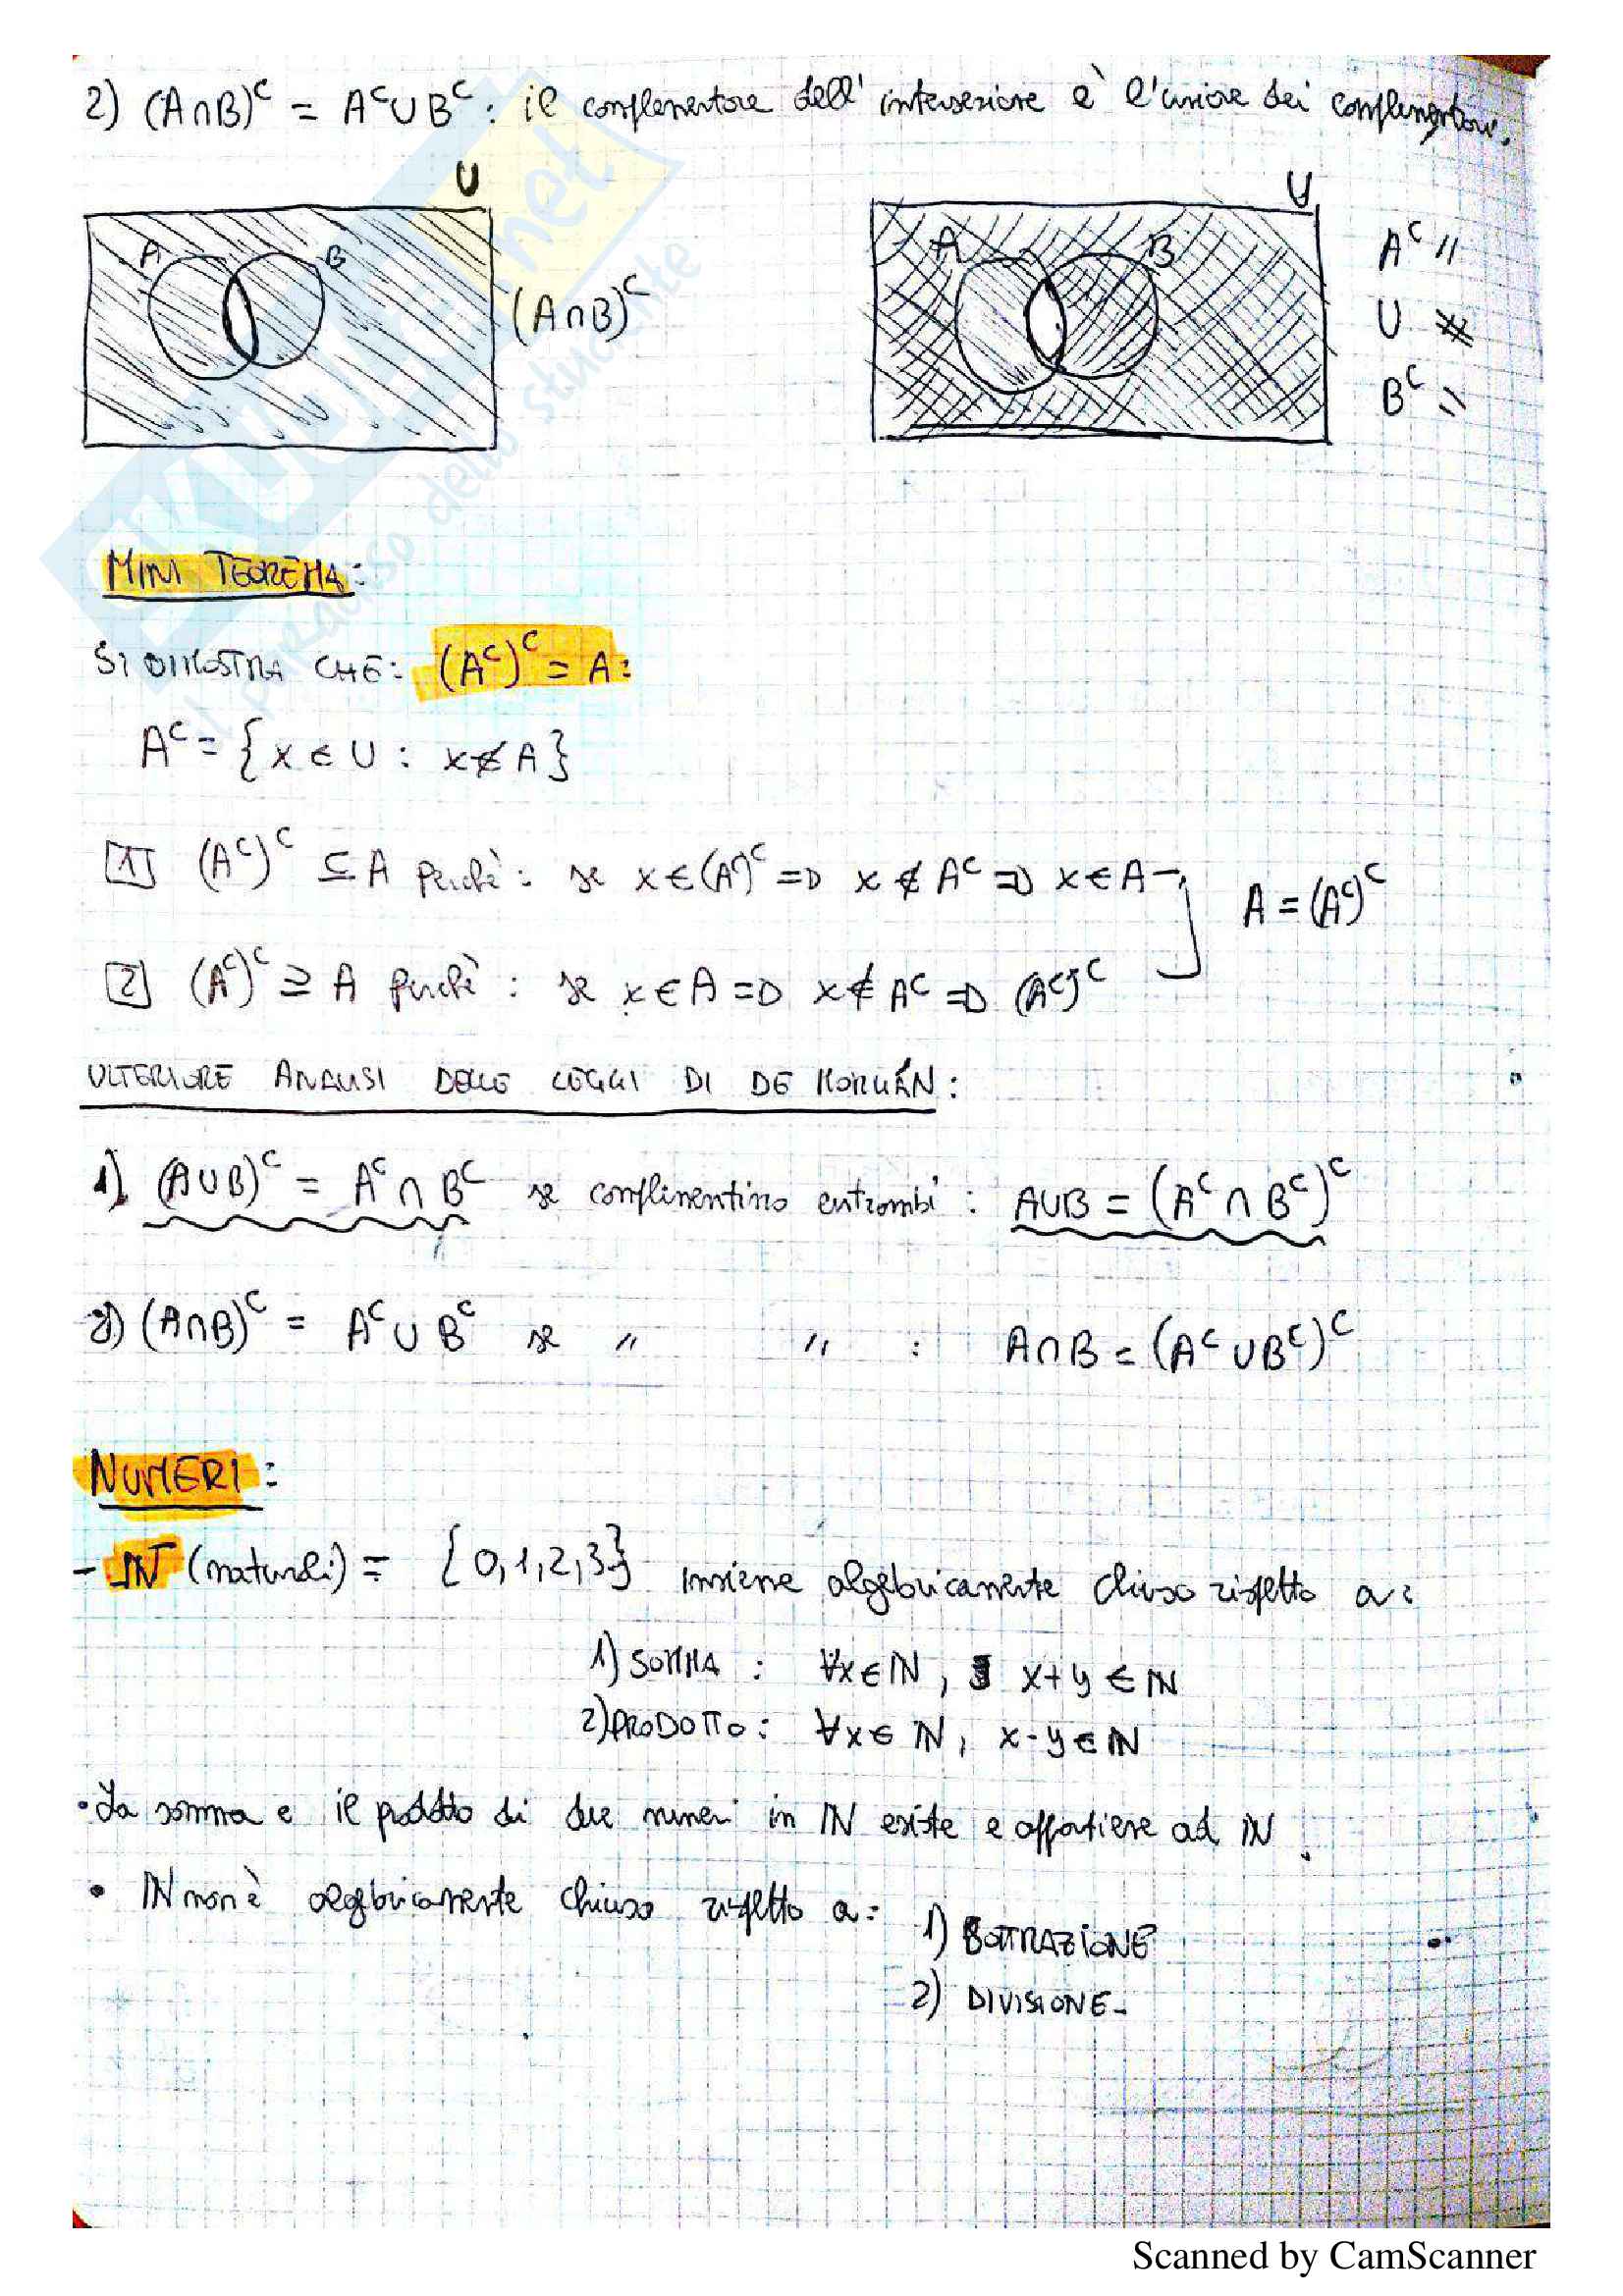 2) (A∩B)ᶜ = Aᶜ∪Bᶜ: il complementare dell' intersezione è l'unione dei complementari.
U
A B
(A∩B)ᶜ
U
A B
Aᶜ //
U #
Bᶜ \\
MINI TEOREMA:
SI DIMOSTRA CHE: (Aᶜ)ᶜ = A:
Aᶜ = {x ∈ U : x ∉ A}
1 (Aᶜ)ᶜ ⊆ A perchè: se x ∈ (Aᶜ)ᶜ => x ∉ Aᶜ => x ∈ A
A = (Aᶜ)ᶜ
2 (Aᶜ)ᶜ ⊇ A perchè: se x ∈ A => x ∉ Aᶜ => (Aᶜ)ᶜ
ULTERIORE ANALISI DELLE LEGGI DI DE MORGAN:
1) (A∪B)ᶜ = Aᶜ ∩ Bᶜ se complimentino entrambi: A∪B = (Aᶜ ∩ Bᶜ)ᶜ
2) (A∩B)ᶜ = Aᶜ ∪ Bᶜ se " " : A∩B = (Aᶜ ∪ Bᶜ)ᶜ
NUMERI:
- ℕ (naturali) = {0,1,2,3} insieme algebricamente chiuso rispetto a:
1) SOMMA : ∀x∈ℕ, x+y ∈ ℕ
2) PRODOTTO: ∀x∈ℕ, x·y∈ℕ
• La somma e il prodotto di due numeri in ℕ esiste e appartiene ad ℕ.
• ℕ non è algebricamente chiuso rispetto a: 1) SOTTRAZIONE
2) DIVISIONE.
Scanned by CamScanner